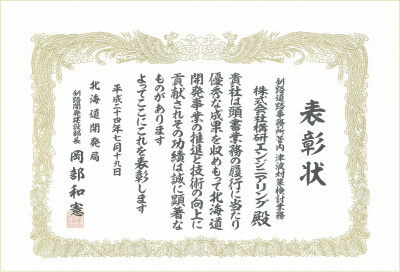 表彰状
釧路道路事務所管内 津波対策検討業務
株式会社構研エンジニアリング殿
貴社は頭書業務の履行に当たり
優秀な成果を収めもって北海道
開発事業の推進と技術の向上に
貢献されその功績は誠に顕著な
ものがあります
よってここにこれを表彰します
平成二十四年七月十九日
北海道開発局
釧路開発建設部長 岡部和憲